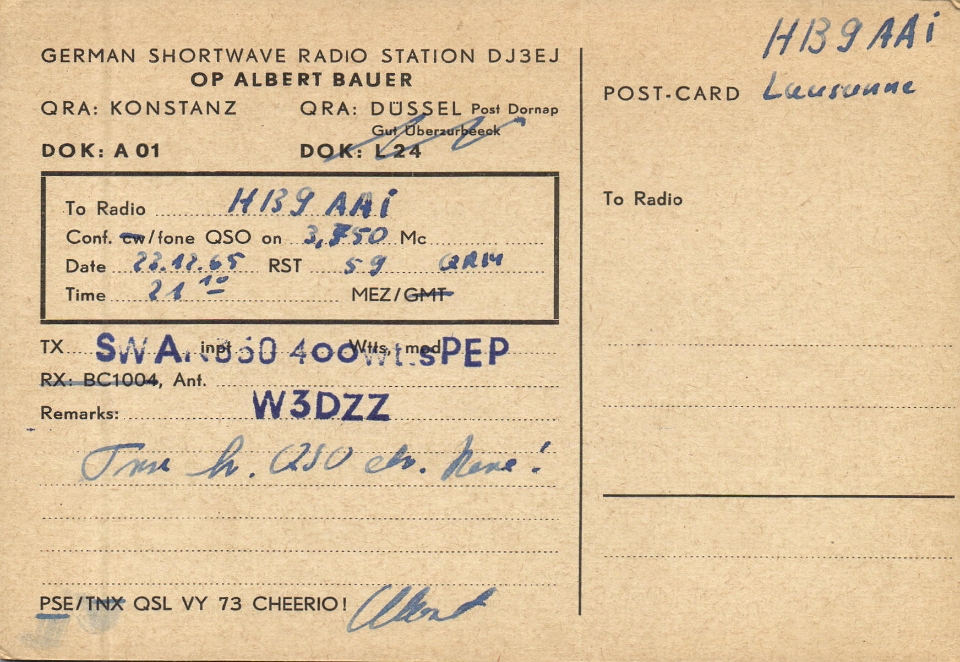 GERMAN SHORTWAVE RADIO STATION DJ3EJ
OP ALBERT BAUER
QRA: KONSTANZ QRA: DÜSSEL Post Dornap
Gut Überzurbeeck
DOK: A 01 DOK: L 24
To Radio HB9AAi
Conf. cw/fone QSO on 3,750 Mc
Date 23.12.65 RST 59 QRM
Time 21 10 MEZ/GMT
TX SWAN 350 inpt 400 Wtts, mod wtts PEP
RX: BC1004, Ant.
W3DZZ
Remarks:
Tnx QSO René!
PSE/TNX QSL VY 73 CHEERIO! Albert
HB9AAi
POST-CARD Lausanne
To Radio